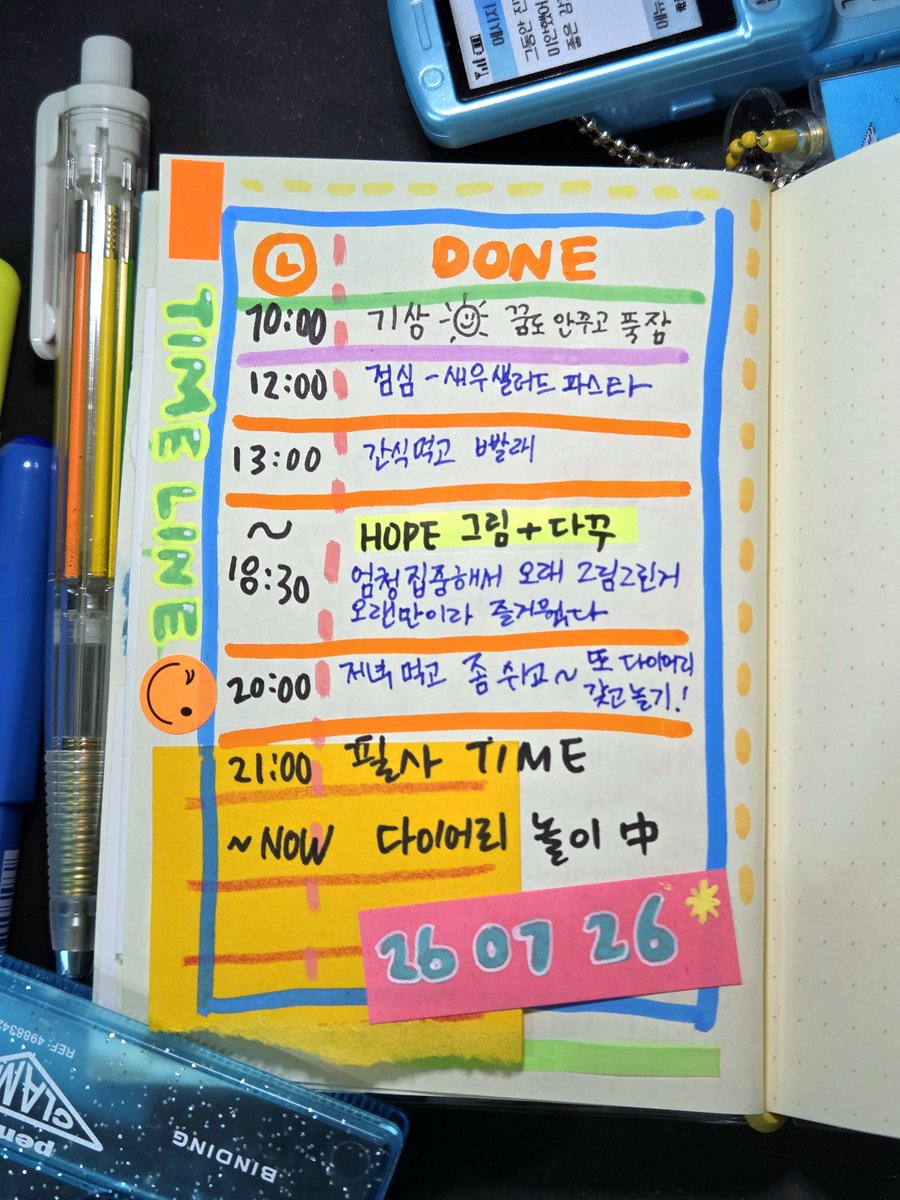 메시지
DONE
TIME LINE
10:00 기상 꿈도 안꾸고 푹잠
12:00 점심 - 새우샐러드 파스타
13:00 간식먹고 빨래
~ HOPE 그림 + 다꾸
18:30 엄청집중해서 오래 그림그린거
오랜만이라 즐거웠다
20:00 저녁먹고 좀 쉬고~ 또 다이어리
갖고놀기!
21:00 필사 TIME
~NOW 다이어리 놀이 中
26 07 26
REF: 4988342
pen
CLAM
BINDING